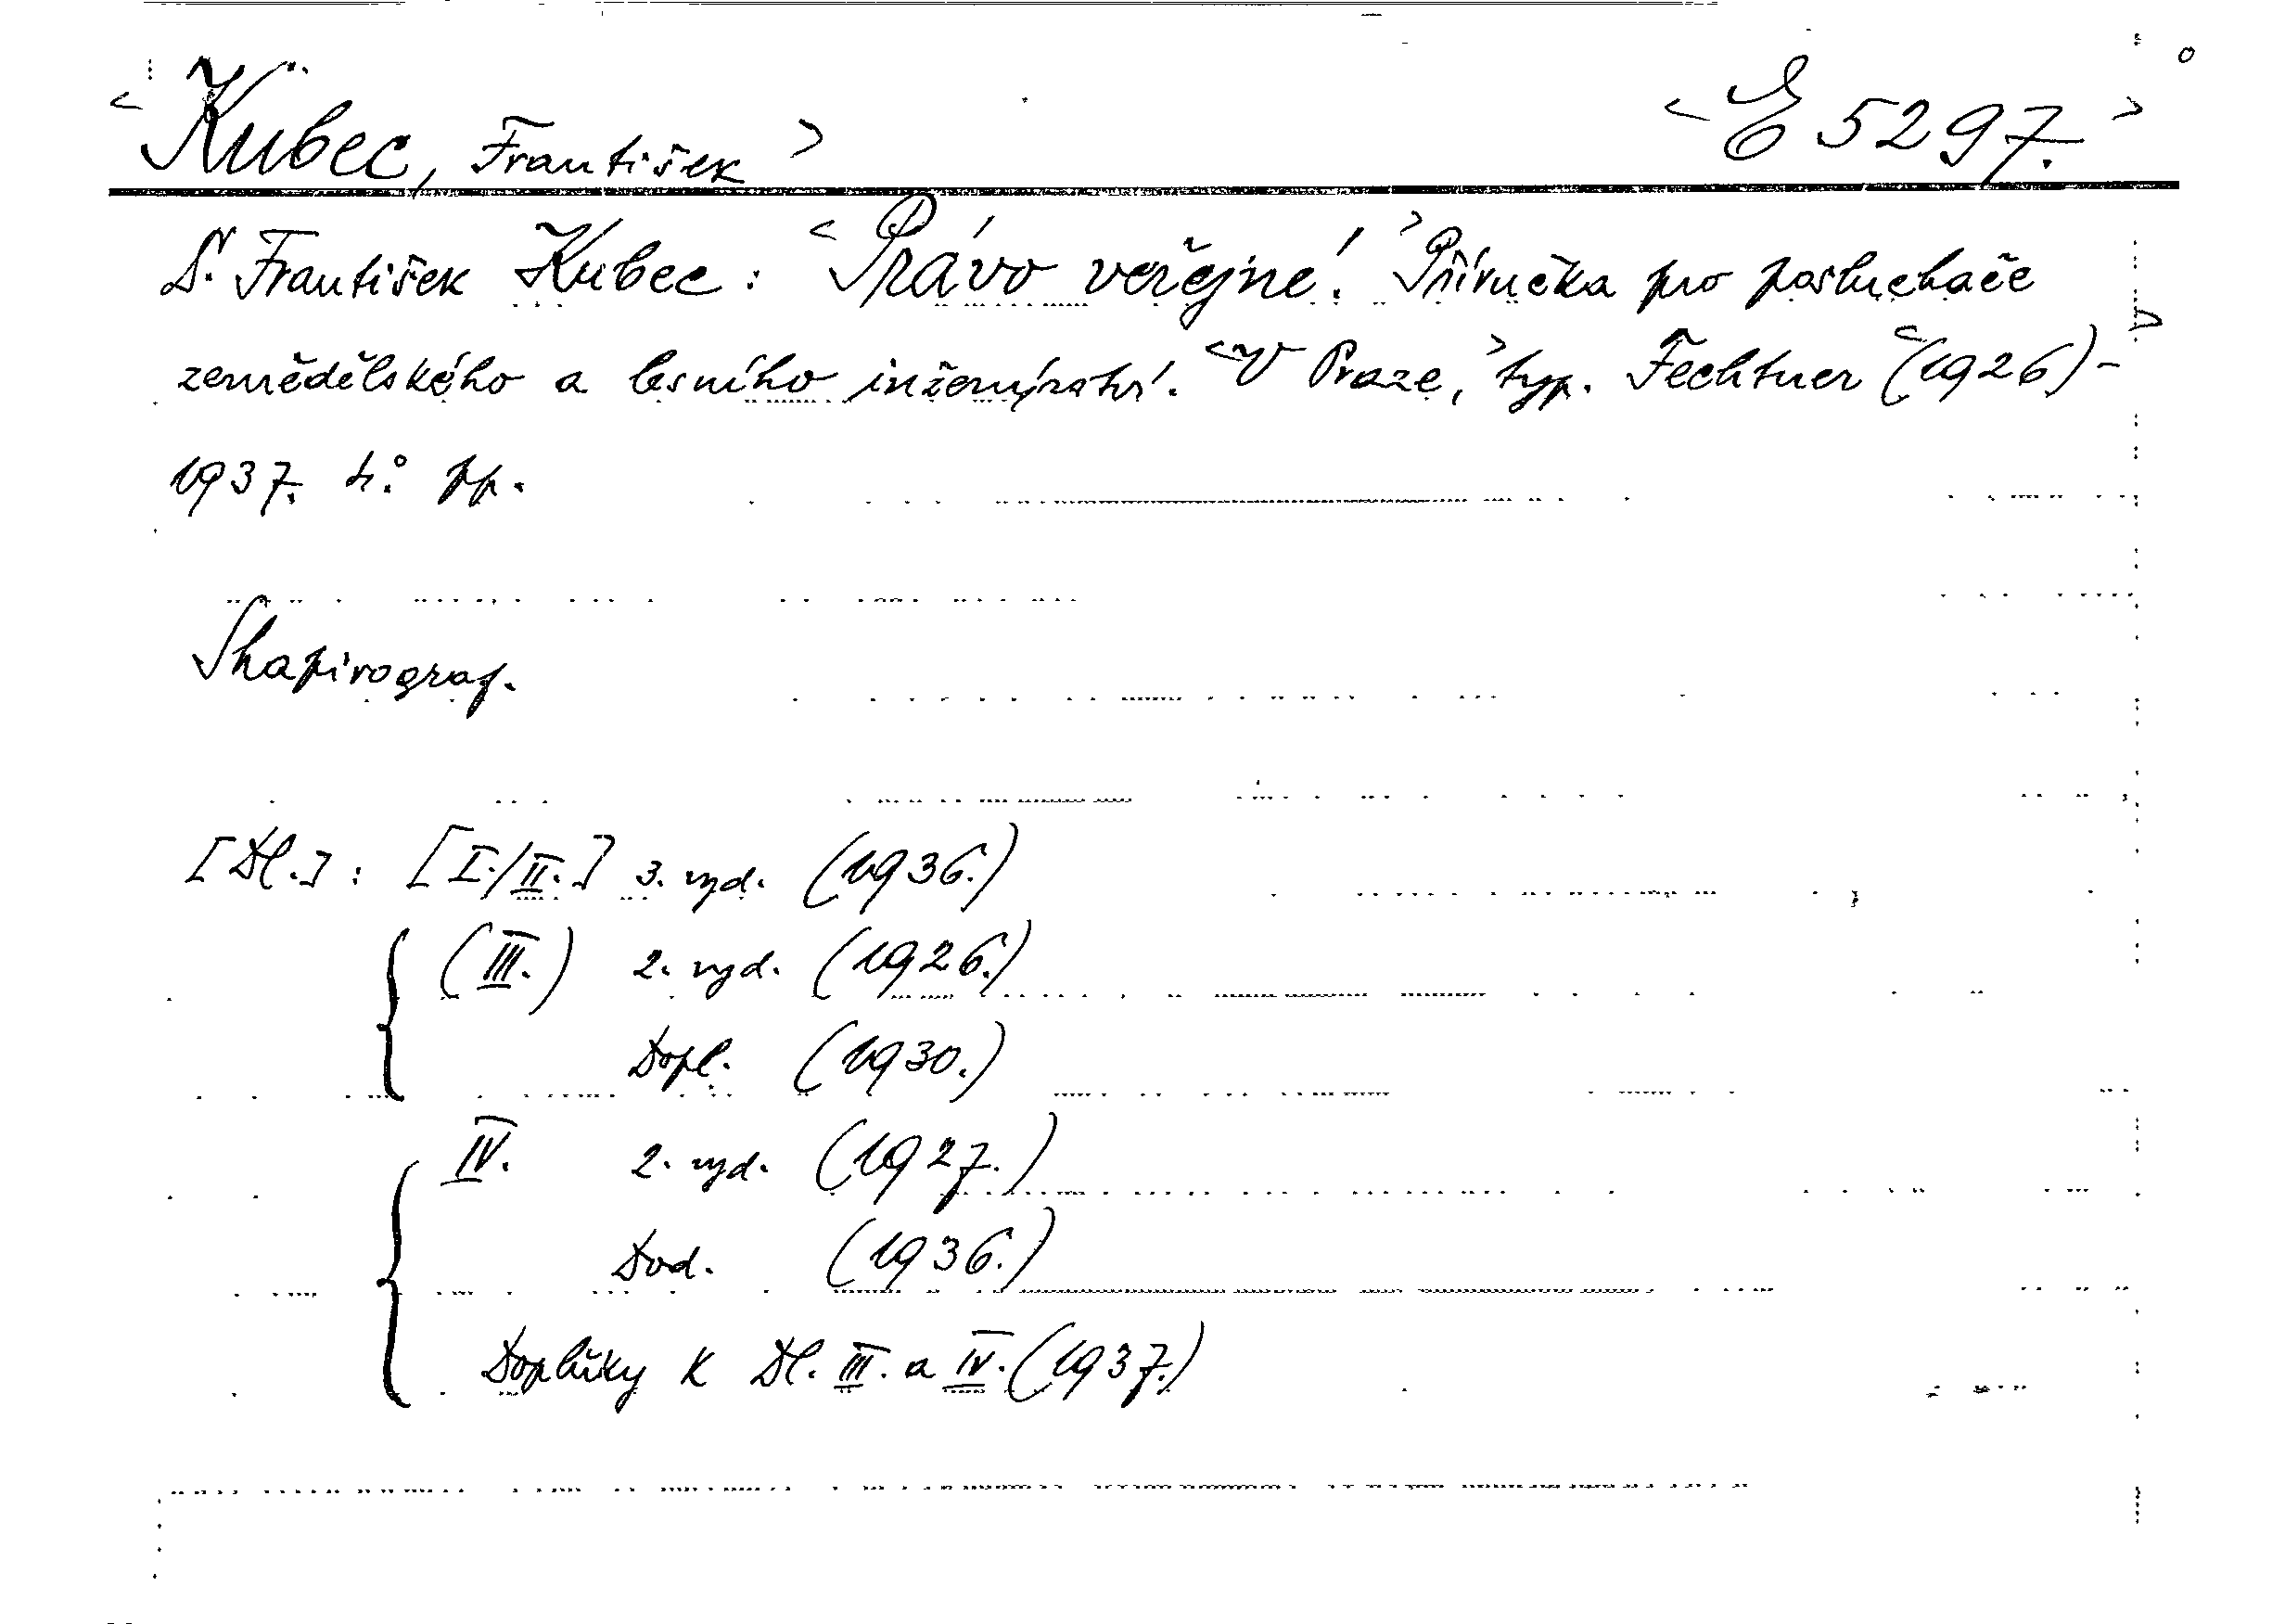 <Kubec, František> <E 5297.>
Dr. František Kubec: <Právo veřejné.> Příručka pro posluchače
zemědělského a lesního inženýrství. <V Praze,> typ. Fechtner <(1926)-
1937.> 4.° pp.
Shapirograf.
[Dl.]: [I./II.] 3. vyd. (1936.)
(III.) 2. vyd. (1926.)
Dopl. (1930.)
IV. 2. vyd. (1927.)
Dod. (1936.)
Doplňky k Dl. III. a IV. (1937.)